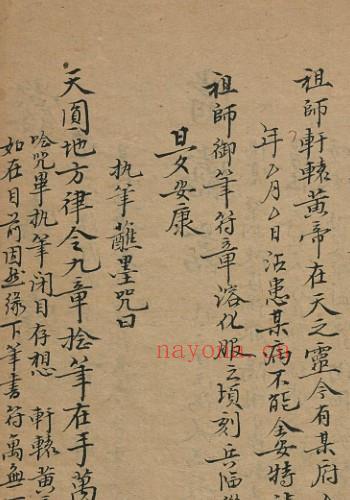 祖師軒轅黃帝在天之靈今有某府
年厶月厶日沾患某病不能全安特
祖師御筆符章溶化服之頃刻兵
旦夕安康
执筆蘸墨咒曰
天圓地方律令九章捻筆在手萬
唸咒畢执筆闭目存想 軒轅黃
如在目前因然缘下筆書符萬無一
nayona.cn